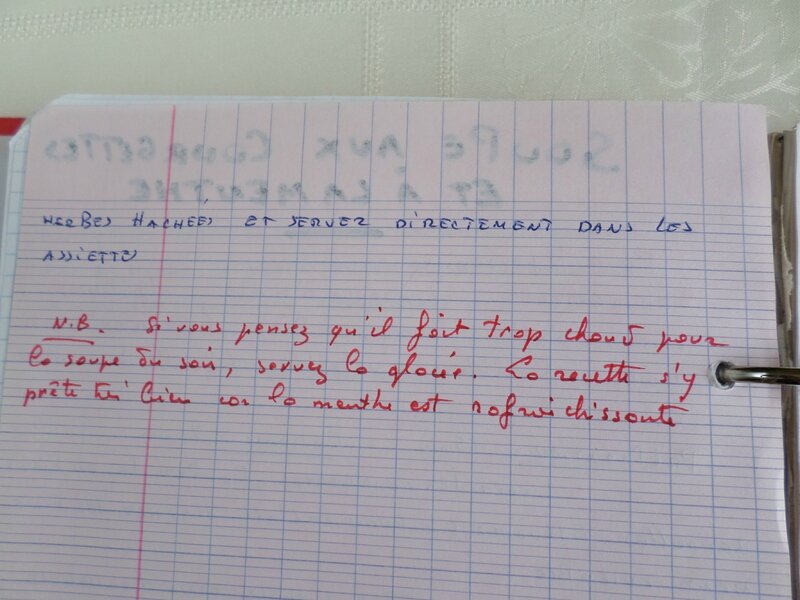 SOUPE AUX COURGETTES
ET À LA MENTHE
HERBES HACHÉES ET SERVEZ DIRECTEMENT DANS LES
ASSIETTES
N.B. Si vous pensez qu'il fait trop chaud pour
la soupe du soir, servez la glacée. La recette s'y
prête très bien car la menthe est rafraichissante